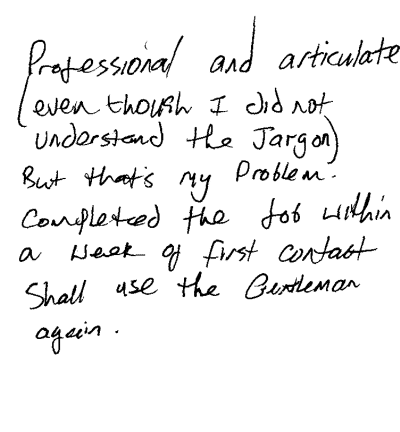 Professional and articulate
(even though I did not
understand the Jargon)
But that's my Problem.
Completed the Job within
a week of first contact
Shall use the Gentleman
again.